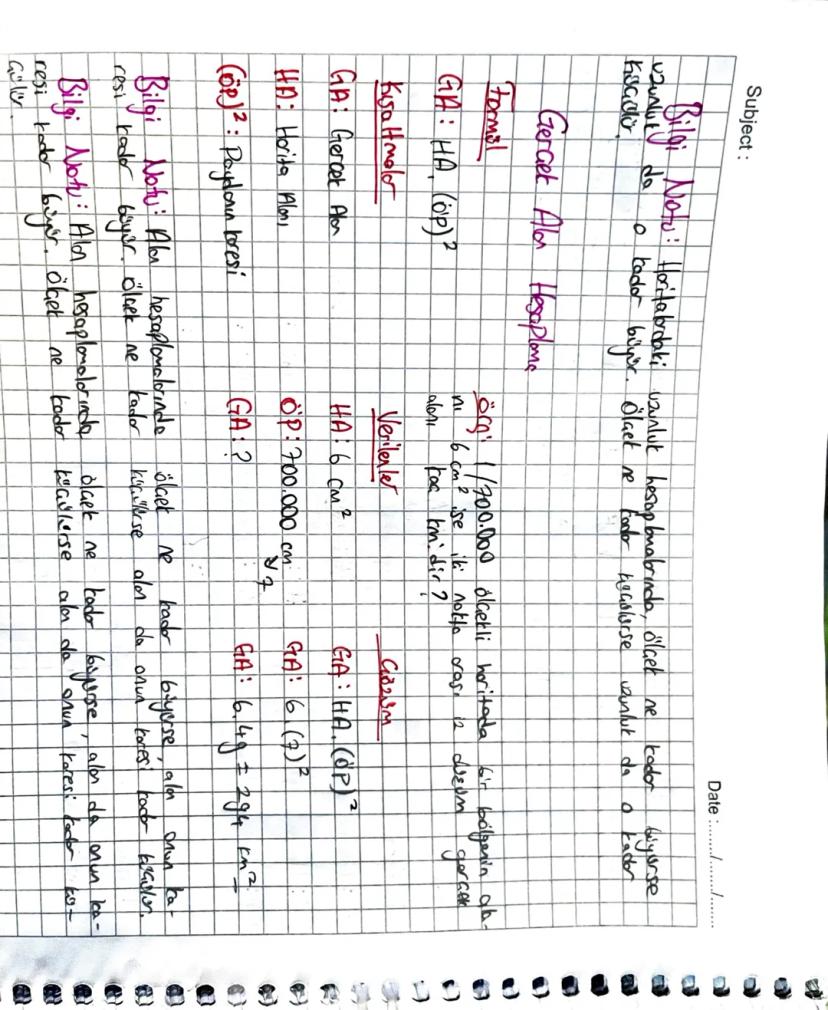 Subject :
Date : ......../......../........
Bilgi Notu: Haritalardaki uzunluk hesaplamalarında, ölçek ne kadar büyürse
uzunluk da o kadar büyür. Ölçek ne kadar küçülürse uzunluk da o kadar
küçülür.
Gerçek Alan Hesaplama
Formül
GA: HA. (ÖP)²
Kısaltmalar
GA: Gerçek Alan
HA: Harita Alanı
(ÖP)²: Paydanın karesi
Örg: 1/700.000 ölçekli haritada bir bölgenin ala-
nı 6 cm² ise iki nokta arası iz düşüm gerçek
alanı kaç km'dir?
Verilenler
HA: 6 cm²
ÖP: 700.000 cm
7
GA: ?
Çözüm
GA: HA. (ÖP)²
GA: 6. (7)²
GA: 6.49 = 294 km²
Bilgi Notu: Alan hesaplamalarında ölçek ne kadar büyürse, alan onun ka-
resi kadar büyür. Ölçek ne kadar küçülürse alan da onun karesi kadar küçülür.
Bilgi Notu: Alan hesaplamalarında ölçek ne kadar büyürse, alan da onun ka-
resi kadar büyür. Ölçek ne kadar küçülürse alan da onun karesi kadar kü-
çülür.